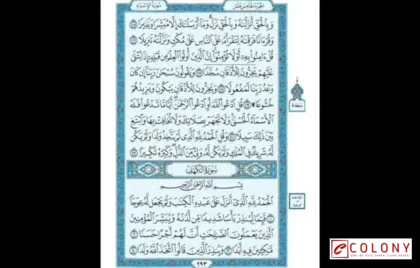 الجزء الخامس عشر سورة الإسراء
وَبِالْحَقِّ أَنزَلْنَاهُ وَبِالْحَقِّ نَزَلَ وَمَا أَرْسَلْنَاكَ إِلَّا مُبَشِّرًا وَنَذِيرًا
وَقُرْآنًا فَرَقْنَاهُ لِتَقْرَأَهُ عَلَى النَّاسِ عَلَىٰ مُكْثٍ وَنَزَّلْنَاهُ تَنزِيلًا
قُلْ آمِنُوا بِهِ أَوْ لَا تُؤْمِنُوا إِنَّ الَّذِينَ أُوتُوا الْعِلْمَ مِن قَبْلِهِ إِذَا يُتْلَىٰ
عَلَيْهِمْ يَخِرُّونَ لِلْأَذْقَانِ سُجَّدًا وَيَقُولُونَ سُبْحَانَ رَبِّنَا إِن كَانَ
وَعْدُ رَبِّنَا لَمَفْعُولًا وَيَخِرُّونَ لِلْأَذْقَانِ يَبْكُونَ وَيَزِيدُهُمْ
خُشُوعًا قُلِ ادْعُوا اللَّهَ أَوِ ادْعُوا الرَّحْمَٰنَ أَيًّا مَّا تَدْعُوا فَلَهُ
الْأَسْمَاءُ الْحُسْنَىٰ وَلَا تَجْهَرْ بِصَلَاتِكَ وَلَا تُخَافِتْ بِهَا وَابْتَغِ
بَيْنَ ذَٰلِكَ سَبِيلًا وَقُلِ الْحَمْدُ لِلَّهِ الَّذِي لَمْ يَتَّخِذْ وَلَدًا وَلَمْ يَكُن
لَّهُ شَرِيكٌ فِي الْمُلْكِ وَلَمْ يَكُن لَّهُ وَلِيٌّ مِّنَ الذُّلِّ وَكَبِّرْهُ تَكْبِيرًا
سُورَةُ الْكَهْفِ
بِسْمِ اللَّهِ الرَّحْمَٰنِ الرَّحِيمِ
الْحَمْدُ لِلَّهِ الَّذِي أَنزَلَ عَلَىٰ عَبْدِهِ الْكِتَابَ وَلَمْ يَجْعَل لَّهُ عِوَجًا
قَيِّمًا لِّيُنذِرَ بَأْسًا شَدِيدًا مِّن لَّدُنْهُ وَيُبَشِّرَ الْمُؤْمِنِينَ
الَّذِينَ يَعْمَلُونَ الصَّالِحَاتِ أَنَّ لَهُمْ أَجْرًا حَسَنًا
مَّاكِثِينَ فِيهِ أَبَدًا وَيُنذِرَ الَّذِينَ قَالُوا اتَّخَذَ اللَّهُ وَلَدًا
٢٩٣
eCOLONY